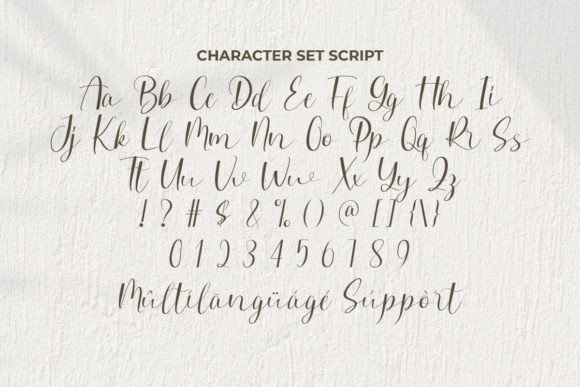 CHARACTER SET SCRIPT
Aa Bb Cc Dd Ee Ff Gg Hh Ii
Jj Kk Ll Mm Nn Oo Pp Qq Rr Ss
Tt Uu Vv Ww Xx Yy Zz
! ? # $ & % ( ) @ [ ] { \ }
0 1 2 3 4 5 6 7 8 9
Mûltílãngüágé Súppòrt